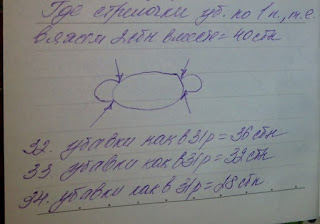 Где стрелочки уб. по 1 п., т.е.
вяжем 2 сбн вместе = 40 сбн
32. убавки как в 31р = 36 сбн
33 убавки как в 31р = 32 сбн
34. убавки как в 31р = 28 сбн